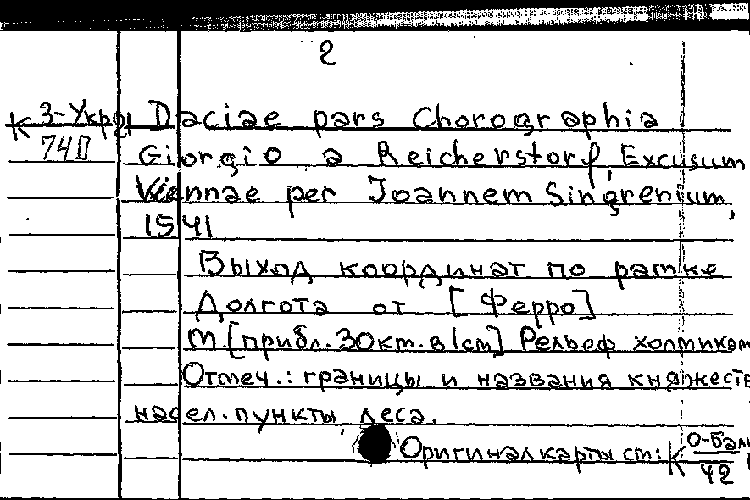 2
К 3-Укр
74
Daciae pars Chorographia
Giorgio a Reicherstorf, Excusum
Viennae per Joannem Singrenium,
1541
Выход координат по рамке
Долгота от [Ферро]
М [прибл. 30км. в 1см] Рельеф холмиками
Отмеч.: границы и названия княжеств
насел. пункты леса.
Оригинал карты см: К О-Бал
42